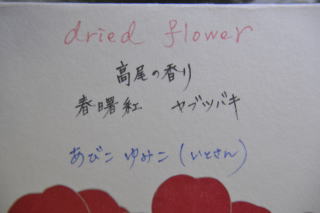 dried flower
高尾の香り
春曙紅 ヤブツバキ
あびこ ゆみこ (いとさん)